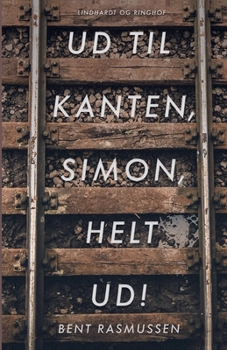 LINDHARDT OG RINGHOF
UD TIL
KANTEN,
SIMON,
HELT
UD!
BENT RASMUSSEN